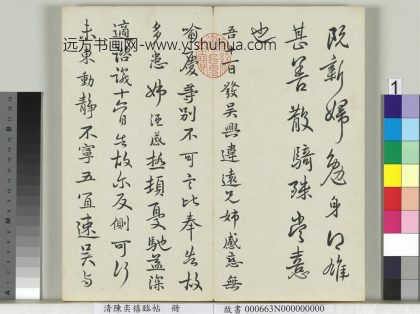 远方书画网-www.yishuhua.com
阮新婦勉身得雄
甚善散騎殊當憙
也
吾一日發吳興違遠兄姊感戀無
喻慶等別不可言比奉告故
多患姊經感極頓憂馳益深
適諮議十六日告故爾反側可行
未東動靜不寧五宜速吳
1
清陳奕禧臨帖 冊
故書 000663N000000000